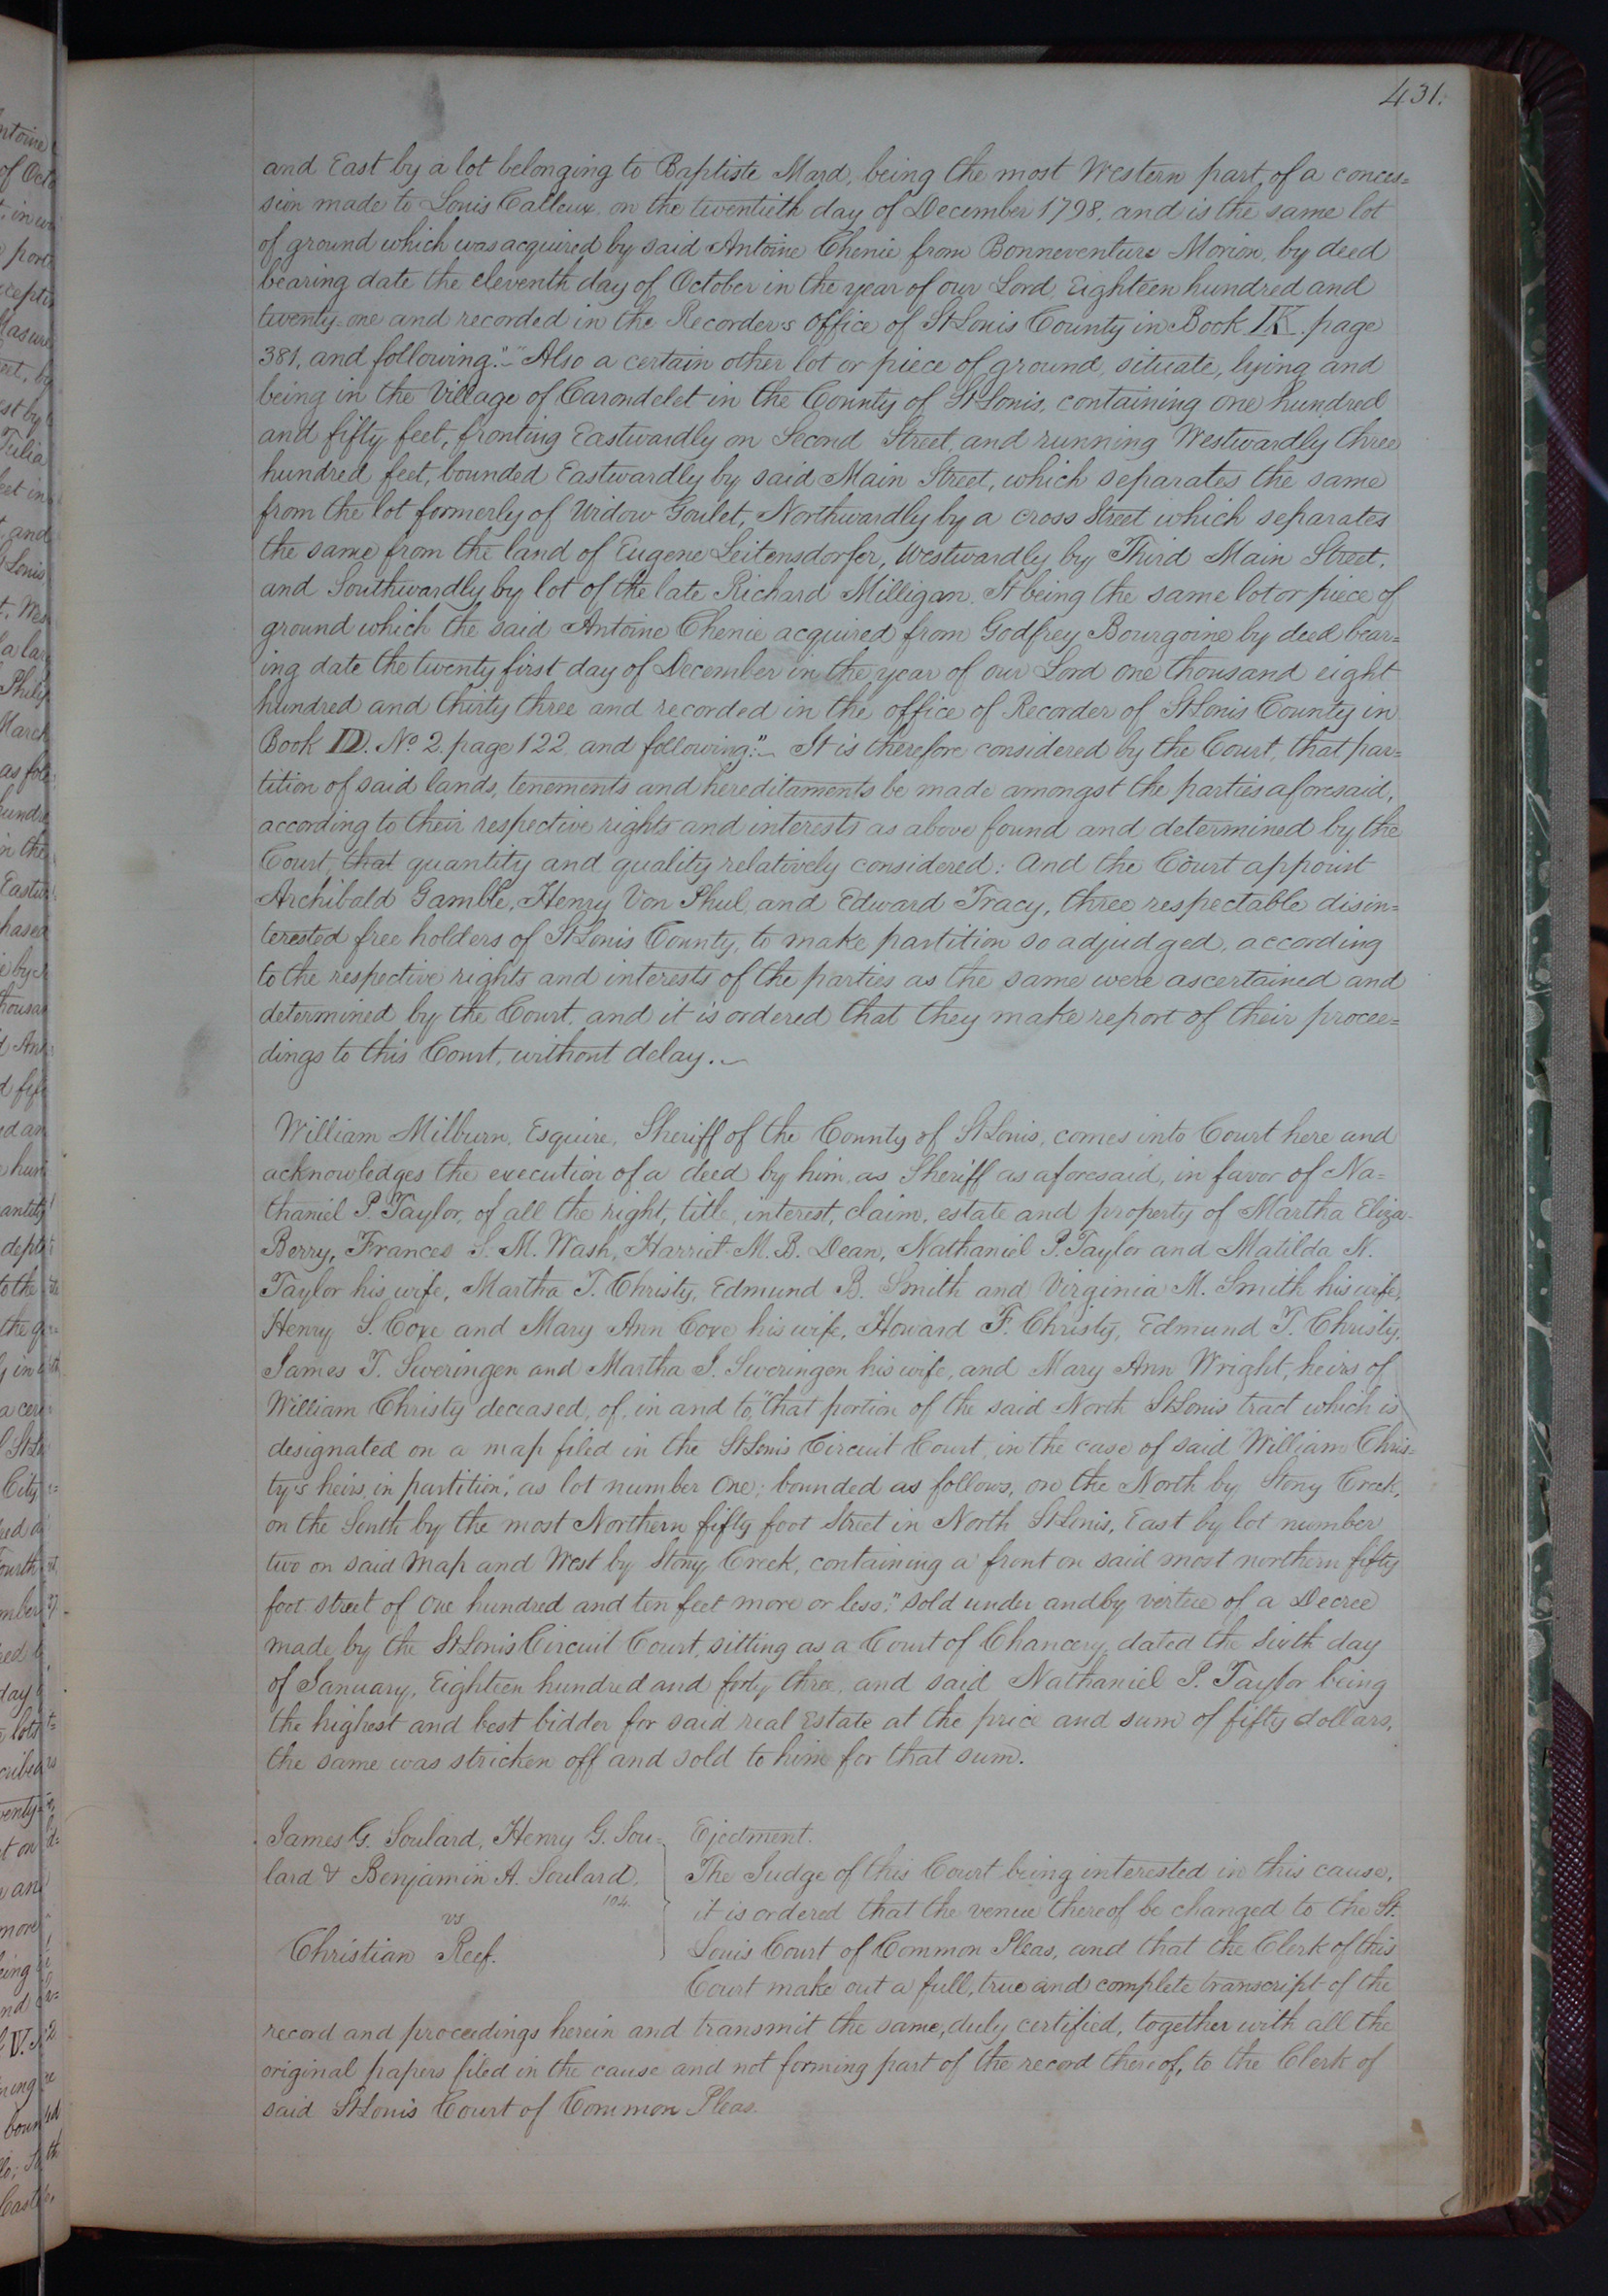 431.
and East by a lot belonging to Baptiste Mard, being the most Western part, of a conces=
sion made to Louis Calleux, on the twentieth day of December 1798, and is the same lot
of ground which was acquired by said Antoine Chenie from Bonneventure Morion, by deed
bearing date the eleventh day of October in the year of our Lord Eighteen hundred and
twenty-one and recorded in the Recorder's office of St Louis County in Book K. page
381, and following." "Also a certain other lot or piece of ground, situate, lying and
being in the Village of Carondelet in the County of St Louis, containing one hundred
and fifty feet, fronting Eastwardly on Second Street, and running Westwardly three
hundred feet, bounded Eastwardly by said Main Street, which separates the same
from the lot formerly of Widow Goulet, Northwardly by a cross Street which separates
the same from the land of Eugene Leitensdorfer, Westwardly by Third Main Street,
and Southwardly by lot of the late Richard Milligan. It being the same lot or piece of
ground which the said Antoine Chenie acquired from Godfrey Bourgoine by deed bear=
ing date the twenty first day of December in the year of our Lord one thousand eight
hundred and thirty three and recorded in the office of Recorder of St Louis County in
Book D. No 2. page 122 and following:" It is therefore considered by the Court, that par=
tition of said lands, tenements and hereditaments be made amongst the parties aforesaid,
according to their respective rights and interests as above found and determined by the
Court, that quantity and quality relatively considered: And the Court appoint
Archibald Gamble, Henry Von Phul, and Edward Tracy, three respectable disin=
terested free holders of St Louis County, to make partition so adjudged, according
to the respective rights and interests of the parties as the same were ascertained and
determined by the Court, and it is ordered that they make report of their procee=
dings to this Court, without delay.
William Milburn, Esquire, Sheriff of the County of St Louis, comes into Court here and
acknowledges the execution of a deed by him, as Sheriff as aforesaid, in favor of Na=
thaniel P. Taylor, of all the right, title, interest, claim, estate and property of Martha Eliza-
Berry, Frances S. M. Wash, Harriet M. B. Dean, Nathaniel P. Taylor and Matilda N.
Taylor his wife, Martha T. Christy, Edmund B. Smith and Virginia M. Smith his wife,
Henry S. Coxe and Mary Ann Coxe his wife, Howard F. Christy, Edmund T. Christy,
James T. Sweringen and Martha S. Sweringen his wife, and Mary Ann Wright, heirs of
William Christy deceased, of, in and to, "that portion of the said North St Louis tract which is
designated on a map filed in the St Louis Circuit Court, in the case of said William Chris=
ty's heirs, in partition", as lot number One; bounded as follows, on the North by Stony Creek,
on the South by the most Northern fifty foot Street in North St Louis, East by lot number
two on said map and West by Stony Creek, containing a front on said most northern fifty
foot street of one hundred and ten feet more or less," sold under and by virtue of a Decree
made by the St Louis Circuit Court, sitting as a Court of Chancery, dated the sixth day
of January, Eighteen hundred and forty three, and said Nathaniel P. Taylor being
the highest and best bidder for said real Estate at the price and sum of fifty dollars,
the same was stricken off and sold to him for that sum.
James G. Soulard, Henry G. Sou= Ejectment.
lard & Benjamin A. Soulard, The Judge of this Court being interested in this cause,
104. it is ordered that the venue thereof be changed to the St.
vs
Christian Reef. Louis Court of Common Pleas, and that the Clerk of this
Court make out a full, true and complete transcript of the
record and proceedings herein and transmit the same, duly certified, together with all the
original papers filed in the cause and not forming part of the record thereof, to the Clerk of
said St Louis Court of Common Pleas.